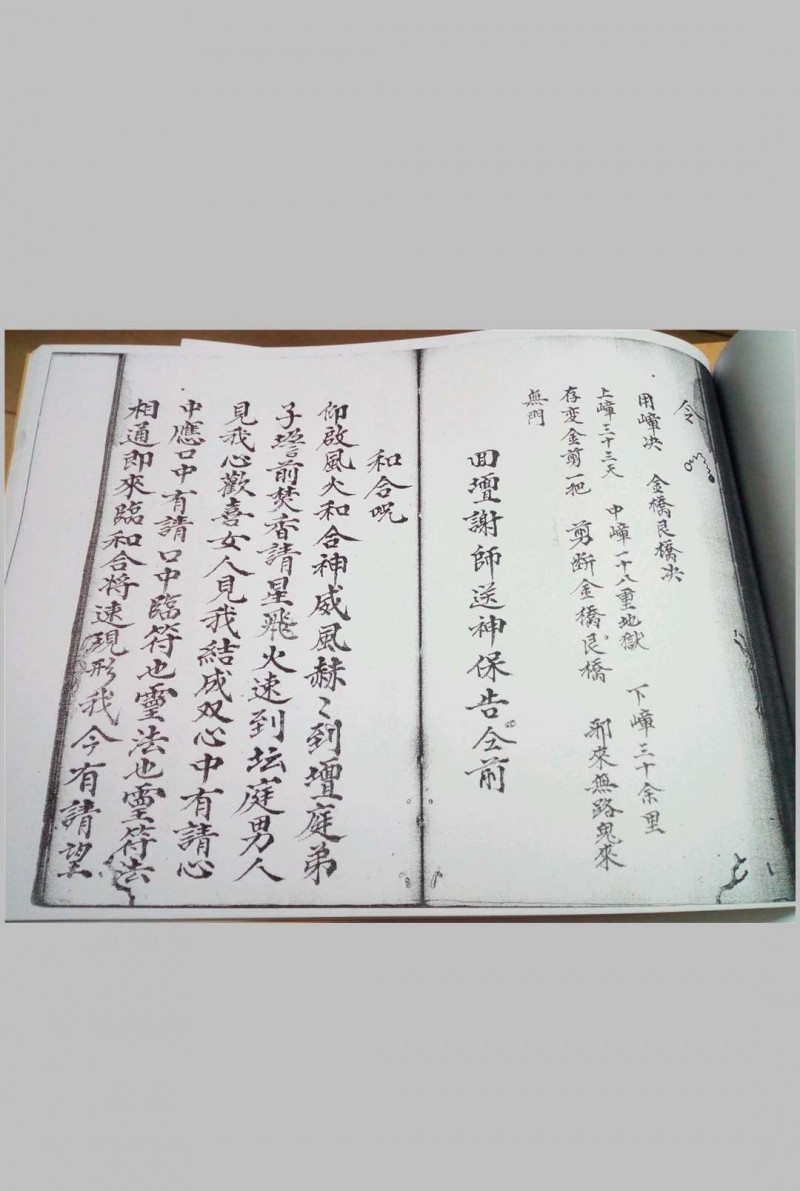 令
用嶂决　金橋艮橋决
上嶂三十三天　中嶂一十八重地獄　下嶂三十余里
存变金剪一把　剪断金橋艮橋　邪來無路鬼來
無門
回壇謝師送神保告仝前
和合呪
仰啟風火和合神威風赫〻到壇庭弟
子壇前焚香請星飛火速到坛庭男人
見我心歡喜女人見我結成双心中有請心
中應口中有請口中臨符也靈法也靈符法
相通即來臨和合将速現形我今有請望